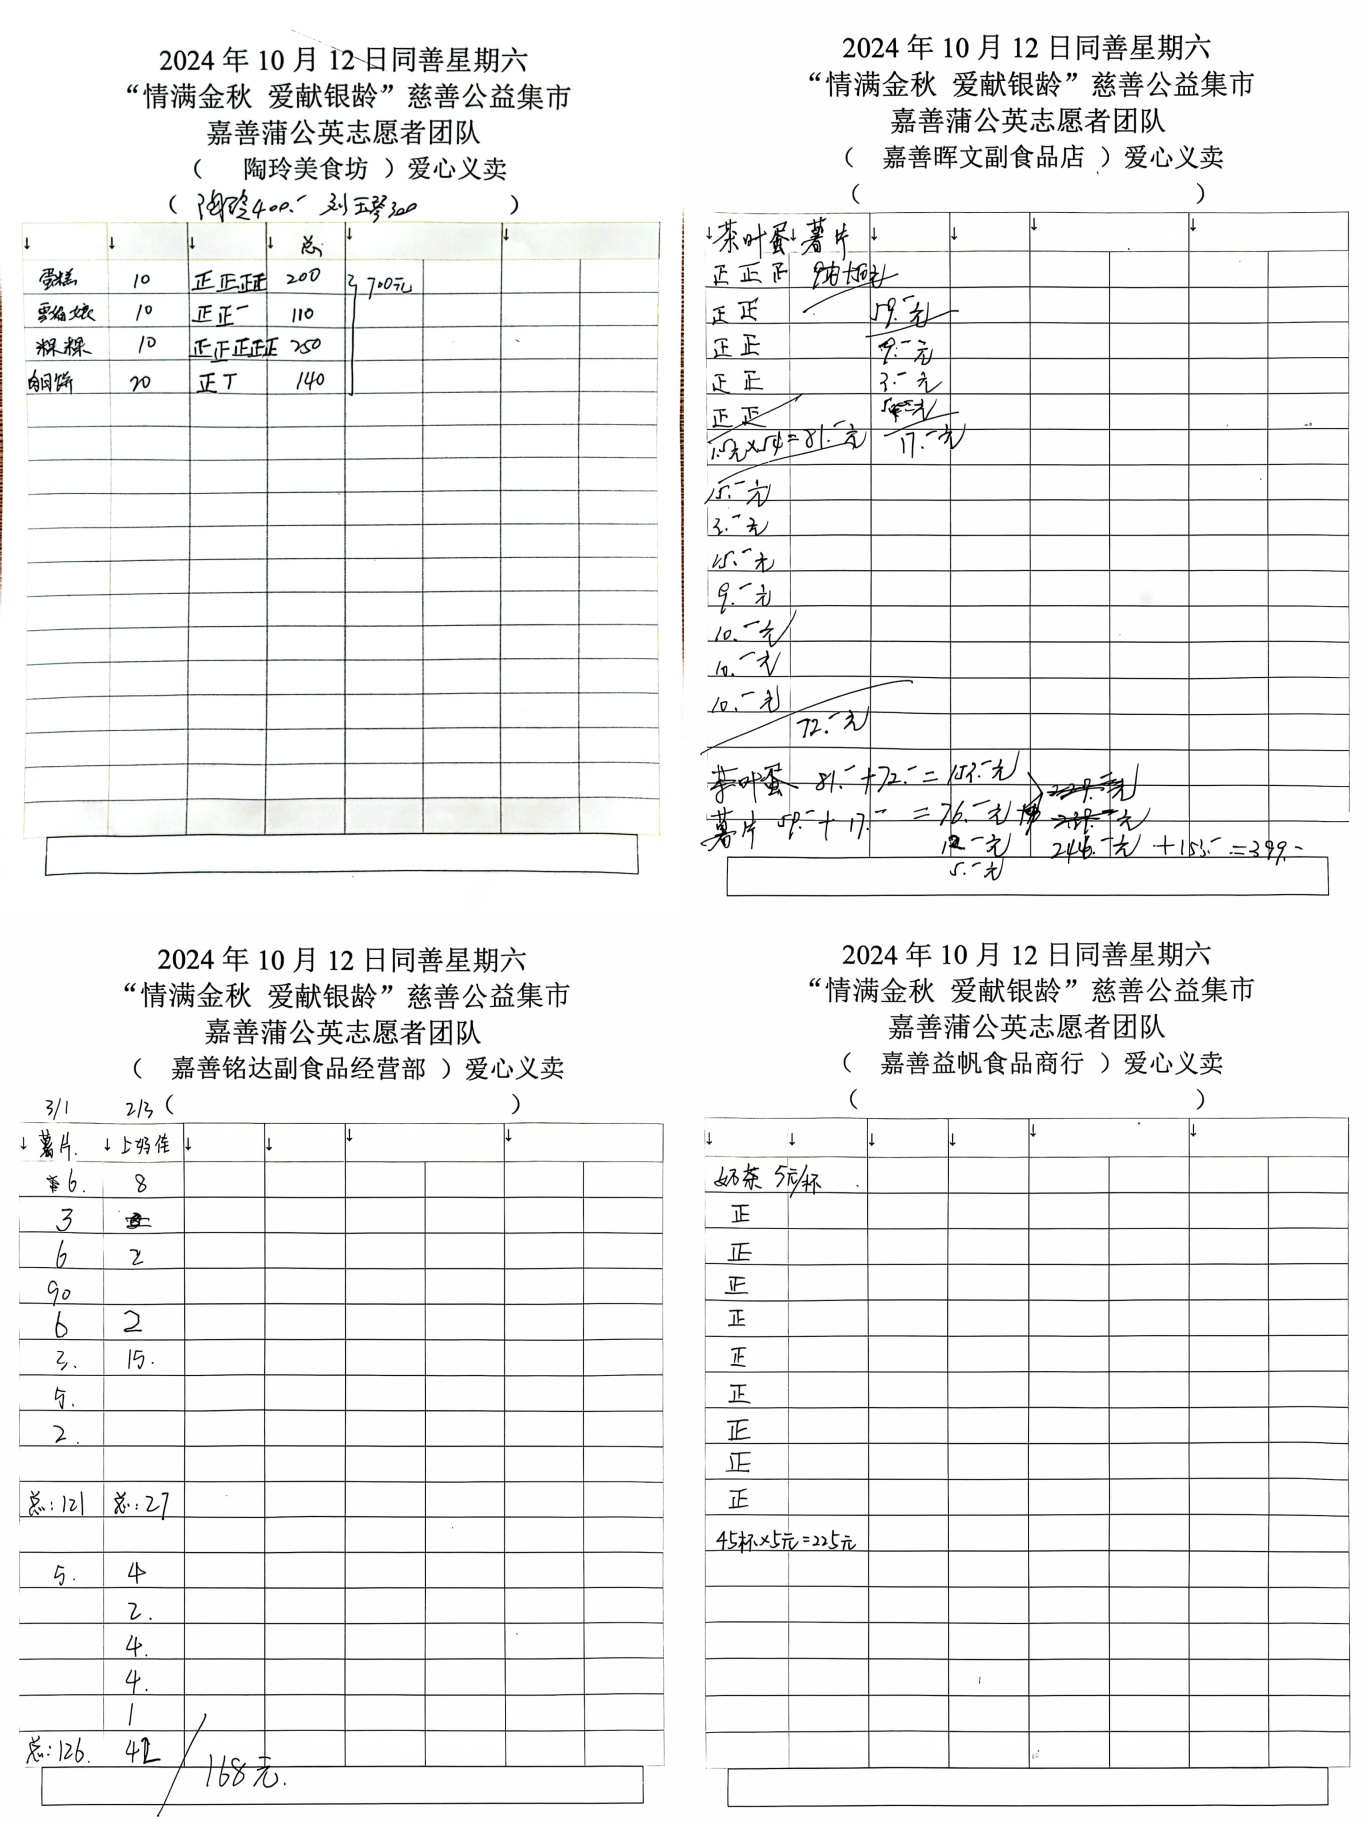 2024 年 10 月 12 日同善星期六
“情满金秋 爱献银龄”慈善公益集市
嘉善蒲公英志愿者团队
( 陶玲美食坊 ) 爱心义卖
( 陶玲400.- 刘玉琴300 )
↓ ↓ ↓ ↓ 总 ↓ ↓
蛋糕 10 正正正正 200 700元
雪梅娘 10 正正一 110
粿粿 10 正正正正正 250
月饼 20 正丅 140
2024 年 10 月 12 日同善星期六
“情满金秋 爱献银龄”慈善公益集市
嘉善蒲公英志愿者团队
( 嘉善晖文副食品店 ) 爱心义卖
( )
↓茶叶蛋↓ 薯片 ↓ ↓ ↓ ↓
正 正
正 正 59.-元
正 正 9.-元
正 正 3.-元
正 正
1.5元×54=81.-元 17.-元
15.-元
3.-元
15.-元
9.-元
10.-元
10.-元
10.-元
72.-元
茶叶蛋 81.-+72.-=153.-元
薯片 59.-+17.- =76.-元
12.-元 246.-元 +153.-=399.-
5.-元
2024 年 10 月 12 日同善星期六
“情满金秋 爱献银龄”慈善公益集市
嘉善蒲公英志愿者团队
( 嘉善铭达副食品经营部 ) 爱心义卖
3/1 2/3 ( )
↓ 薯片. ↓ 上好佳 ↓ ↓ ↓ ↓
6. 8
3
6 2
90
6 2
3. 15.
5.
2.
总:121 总:27
5. 4
2.
4.
4.
1
总:126. 42
168元.
2024 年 10 月 12 日同善星期六
“情满金秋 爱献银龄”慈善公益集市
嘉善蒲公英志愿者团队
( 嘉善益帆食品商行 ) 爱心义卖
( )
↓ ↓ ↓ ↓ ↓ ↓
奶茶 5元/杯
正
正
正
正
正
正
正
正
正
45杯×5元=225元